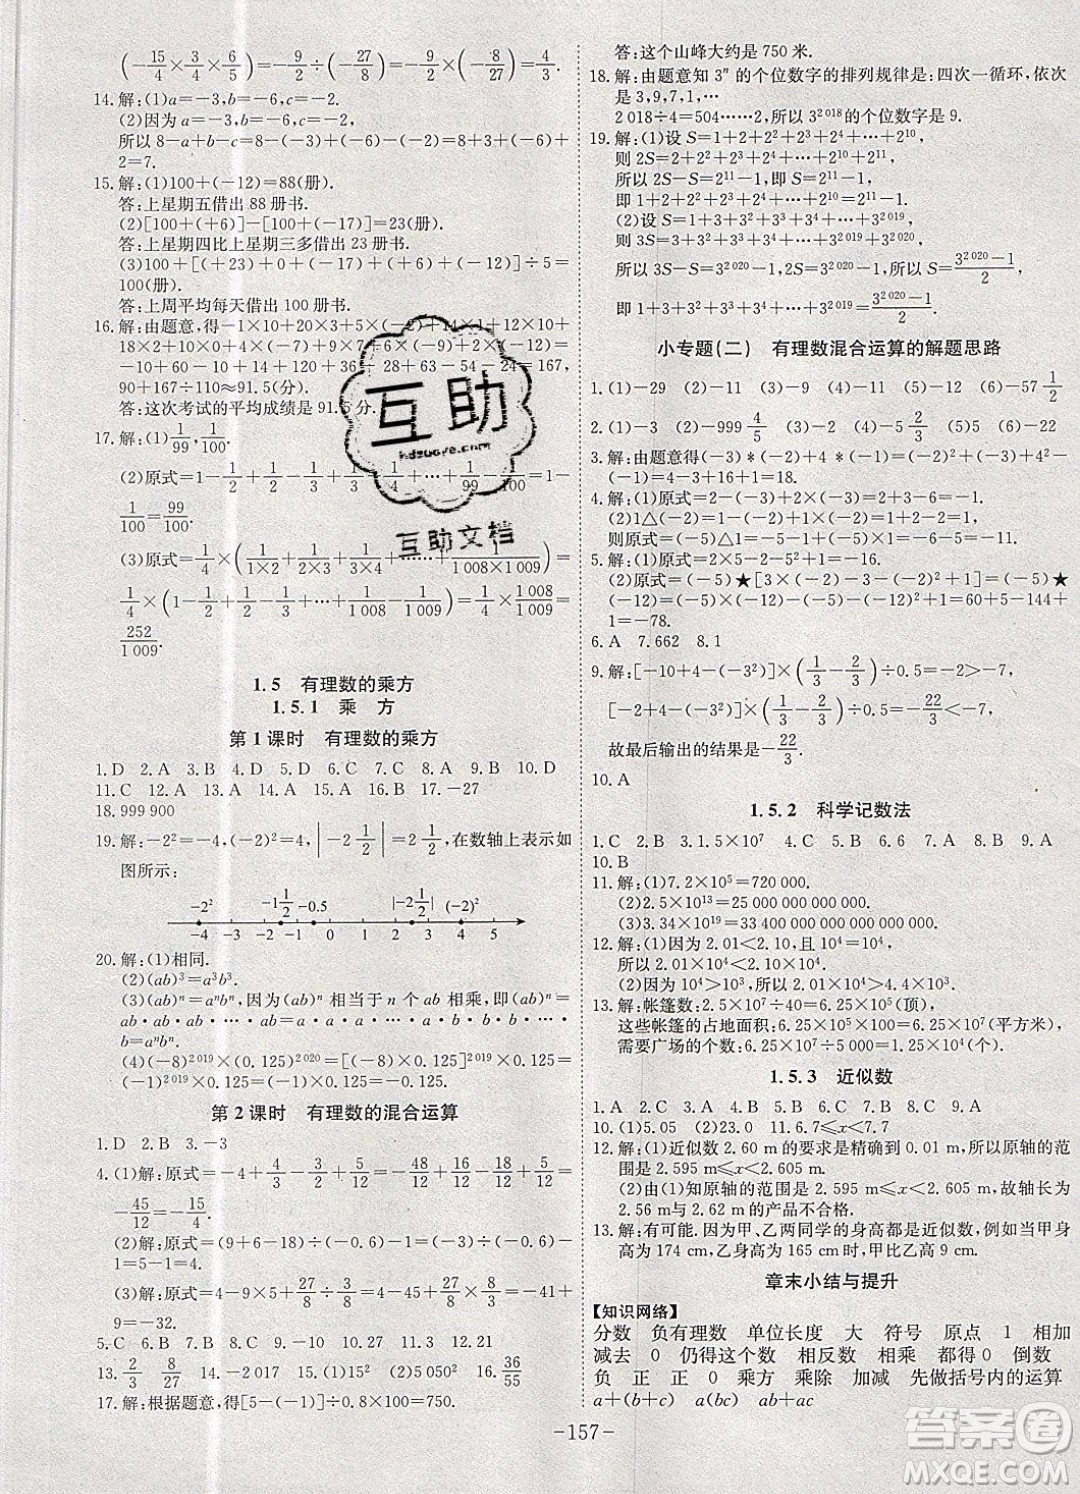 (-15/4×3/4×6/5)=-9/2÷(-27/8)=4/3.
14.解:(1)a=-3,b=-6,c=-2.
(2)因为 a=-3,b=-6,c=-2,
所以 8-a+b-c=8-(-3)+(-6)-(-2)=8+3-6+
2=7.
15.解:(1)100+(-12)=88(册).
答:上星期五借出 88 册书.
(2)[100+(+6)]-[100+(-17)]=23(册).
答:上星期四比上星期三多借出 23 册.
(3)100+[(+23)+0+(-17)+(+6)+(-12)]÷5=
100(册).
答:上周平均每天借出 100 册书.
16.解:由题意,得-1×10+20×10+12×10+
答:这次考试的平均成绩是 91.5 分.
17.解:(1)1/99,1/100.
1/100=99/100.
1/4×(1-1/2+1/2-1/3+…+1/1 008-1/1 009)=1/4×1 008/1 009=
252/1 009.
1.5 有理数的乘方
1.5.1 乘 方
第 1 课时 有理数的乘方
1.D 2.A 3.A 4.D 5.D 6.C 7.C 8.A 9.A 10.D
11.C 12.B 13.A 14.C 15.A 16.A 17.-27
18.999 900
19.解:-2²=-4,-(-2)²=4,|-2 1/2|=2 1/2,在数轴上表示如
图所示:
-2² -1 1/2 -0.5 |-2 1/2| (-2)²
-4 -3 -2 -1 0 1 2 3 4 5
20.解:(1)相同.
(2)(ab)³=a³b³.
(3)(ab)ⁿ=aⁿbⁿ,因为(ab)ⁿ 相当于 n 个 ab 相乘,即(ab)ⁿ=
ab·ab·ab·…·ab=a·a·a·…·a·b·b·b·…·
b=aⁿbⁿ.
(4)(-8)^2 019×(0.125)^2 020=[(-8)×(0.125)]^2 019×0.125=
(-1)^2 019×0.125=(-1)×0.125=-0.125.
第 2 课时 有理数的混合运算
1.D 2.B 3.-3
4.(1)解:原式=-4+4/3-1/2+5/12=-48/12+16/12-6/12+5/12=
-45/12=-15/4.
(2)解:原式=(9+6-18)÷(-3)-5=(-3)÷(-3)-5=
1-5=-4.
(3)解:原式=4-9×27/8÷27/8+9=4-9×27/8×8/27+9=-41+
9=-32.
5.C 6.B 7.B 8.B 9.C 10.-27 11.3 12.4
13.2/3 8/27 14.-2 017 15.(1)15² (2)n² 16.36/55
17.解:根据题意,得[5-(-1)²-1]÷(-1)=-3.
答:这个山峰大约是 750 米.
18.解:由题意知 3ⁿ 的个位数字的排列规律是:四次一循环,依次
是 3,9,7,1,…
2 018÷4=504……2,所以 3^2 018的个位数字是 9.
19.解:(1)设 S=1+2+2²+2³+2⁴+…+2¹⁰,
则 2S=2+2²+2³+2⁴+…+2¹⁰+2¹¹,
所以 2S-S=2¹¹-1,即 S=2¹¹-1,
即 1+2+2²+2³+2⁴+…+2¹⁰=2¹¹-1.
(2)设 S=1+3+3²+3³+3⁴+…+3^2 019,
则 3S=3+3²+3³+3⁴+…+3^2 019+3^2 020,
所以 3S-S=3^2 020-1,即 2S=3^2 020-1,所以 S=(3^2 020-1)/2,
即 1+3+3²+3³+…+3^2 019=(3^2 020-1)/2.
小专题(二) 有理数混合运算的解题思路
1.(1)-29 (2)-11 (3)-9 (4)-11 (5)-1 (6)-57 1/2
2.(1)-3 (2)-999 4/5 (3)-2 (4)-8 (5)9/2 (6)-22
3.解:由题意得(-2)*(-2)+4*(-1)=(-2)²-(-2)+4²-
(-1)=4+2+16+1=23.
4.解:(1)原式=2-(-3)+2×(-3)-1=2+3-6-1=-2.
(2)1△(-2)=1-(-2)+1×(-2)-1=1+2-2-1=0,
则原式=(-5)△1=-5-1+(-5)×1-1=-5-1-5-1=-12.
5.解:(1)原式=2×5-2-5²+1=10-2-25+1=-16.
(2)原式=(-5)★[3×(-2)-3-(-2)²+1]=(-5)★
(-12)=(-5)×(-12)-(-5)-(-12)²+1=60+5-144+
1=-78.
6.A 7.662 8.1
9.解:[-10+4-(-3²)]×(1/3-2/3)÷0.5=-2>-3,
[-2+4-(-3²)]×(1/3-2/3)÷0.5=-22/3<-3,
故最后输出的结果是-22/3.
10.A
1.5.2 科学记数法
1.C 2.B 3.1.5×10⁷ 4.C 5.B 6.C 7.C 8.C 9.A
10.B
11.解:(1)7.2×10⁵=720 000.
(2)2.5×10¹³=25 000 000 000 000.
(3)3.34×10¹⁹=33 400 000 000 000 000 000.
12.解:(1)因为 2.01<2.10,10⁴=10⁴,
所以 2.01×10⁴<2.10×10⁴.
(2)因为 10⁴>10³,所以 1.2×10⁴>4.4×10³.
13.解:帐篷数:2.5×10⁷÷40=6.25×10⁵(顶),
这些帐篷的占地面积:6.25×10⁵×100=6.25×10⁷(平方米),
需要广场的个数:6.25×10⁷÷(1×10⁴)=6.25×10³(个).
1.5.3 近似数
1.A 2.C 3.B 4.C 5.B 6.D 7.D 8.D 9.C
10.(1)5.02 (2)23.0 11.6.7≤x<7.7
12.解:(1)近似数 2.60 m 的要求是精确到 0.01 m,所以原轴的范
围是 2.595 m≤x<2.605 m.
(2)由(1)知原轴的范围是 2.595 m≤x<2.605 m,故轴长为
2.56 m与 2.62 m的产品不合格.
13.解:有可能.因为甲、乙两同学的身高都是近似数,例如当甲身
高为 174 cm,乙身高为 165 cm时,甲比乙高 9 cm.
章末小结与提升
【知识网络】
分数 负有理数 单位长度 大 符号 原点 1 相加
减去 0 仍得这个数 相反数 相乘 都得 0 倒数
负 正 正 0 乘方 乘除 加减 先做括号内的运算
a+(b+c) a(bc) ab+ac
-157-
互助
hdzuoye.com
互助文档
答案圈
MXQE.COM